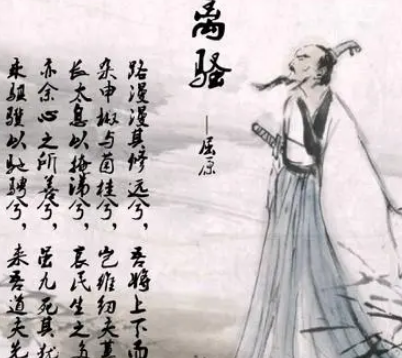 离骚
—屈原
路漫漫其修远兮，吾将上下而
杂申椒与菌桂兮，岂维纫夫
长太息以掩涕兮，哀民生之多
亦余心之所善兮，虽九死其犹
乘骐骥以驰骋兮，来吾道夫先